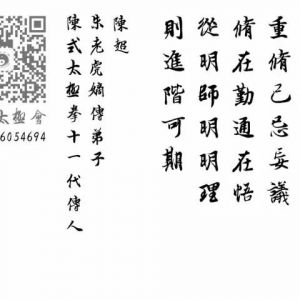 重脩己忌妄議
脩在勤通在悟
從明師明明理
則進階可期
陳超
朱老虎嫡傳弟子
陳式太極拳十一代傳人
太極會
6054694